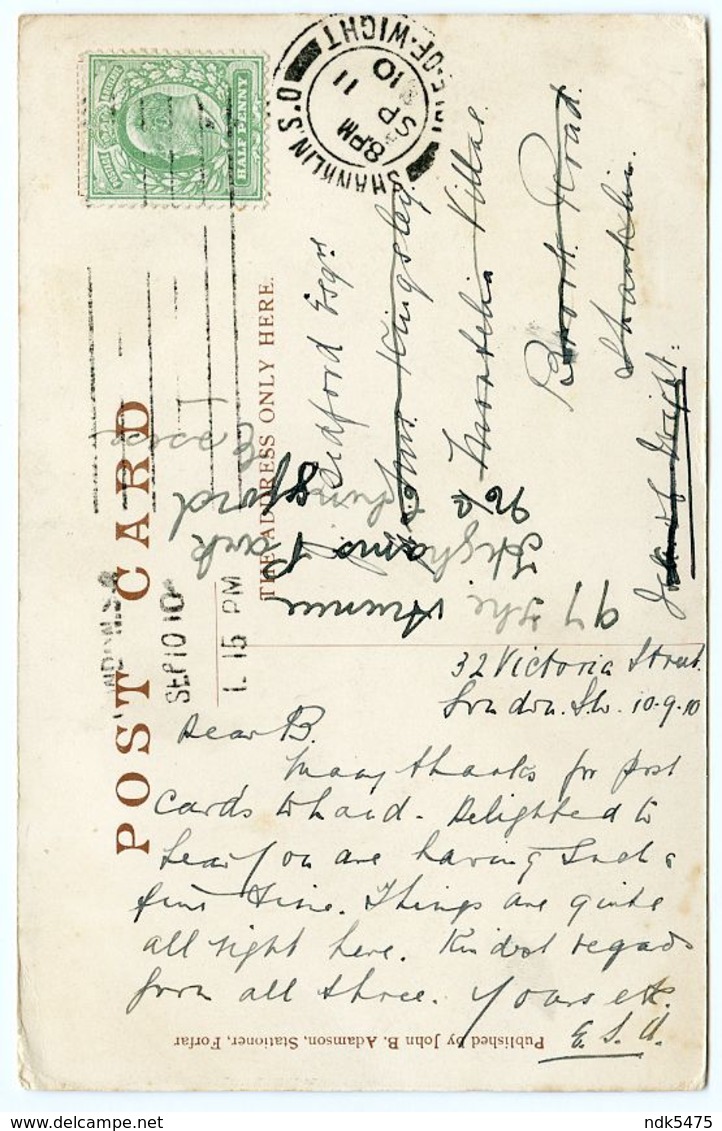 POST CARD
THE ADDRESS ONLY HERE.
HALF PENNY
SHANKLIN S.O. ISLE-OF-WIGHT
8 PM
SP 11
10
SEP 10 10
1. 15 PM
Bidford Esqr
Kingsley
Montilia Villas
Road.
Shanklin.
Isle of Wight:
97 The Avenue
Highams Park
Essex
32 Victoria Street
London. S.W. 10.9.10
Dear B.
Many thanks for post
cards to hand. Delighted to
hear you are having such a
fine time. Things are quite
all right here. Kindest regards
from all three. Yours etc.
E. S. A.
Published by John B. Adamson, Stationer, Forfar
ndk5475